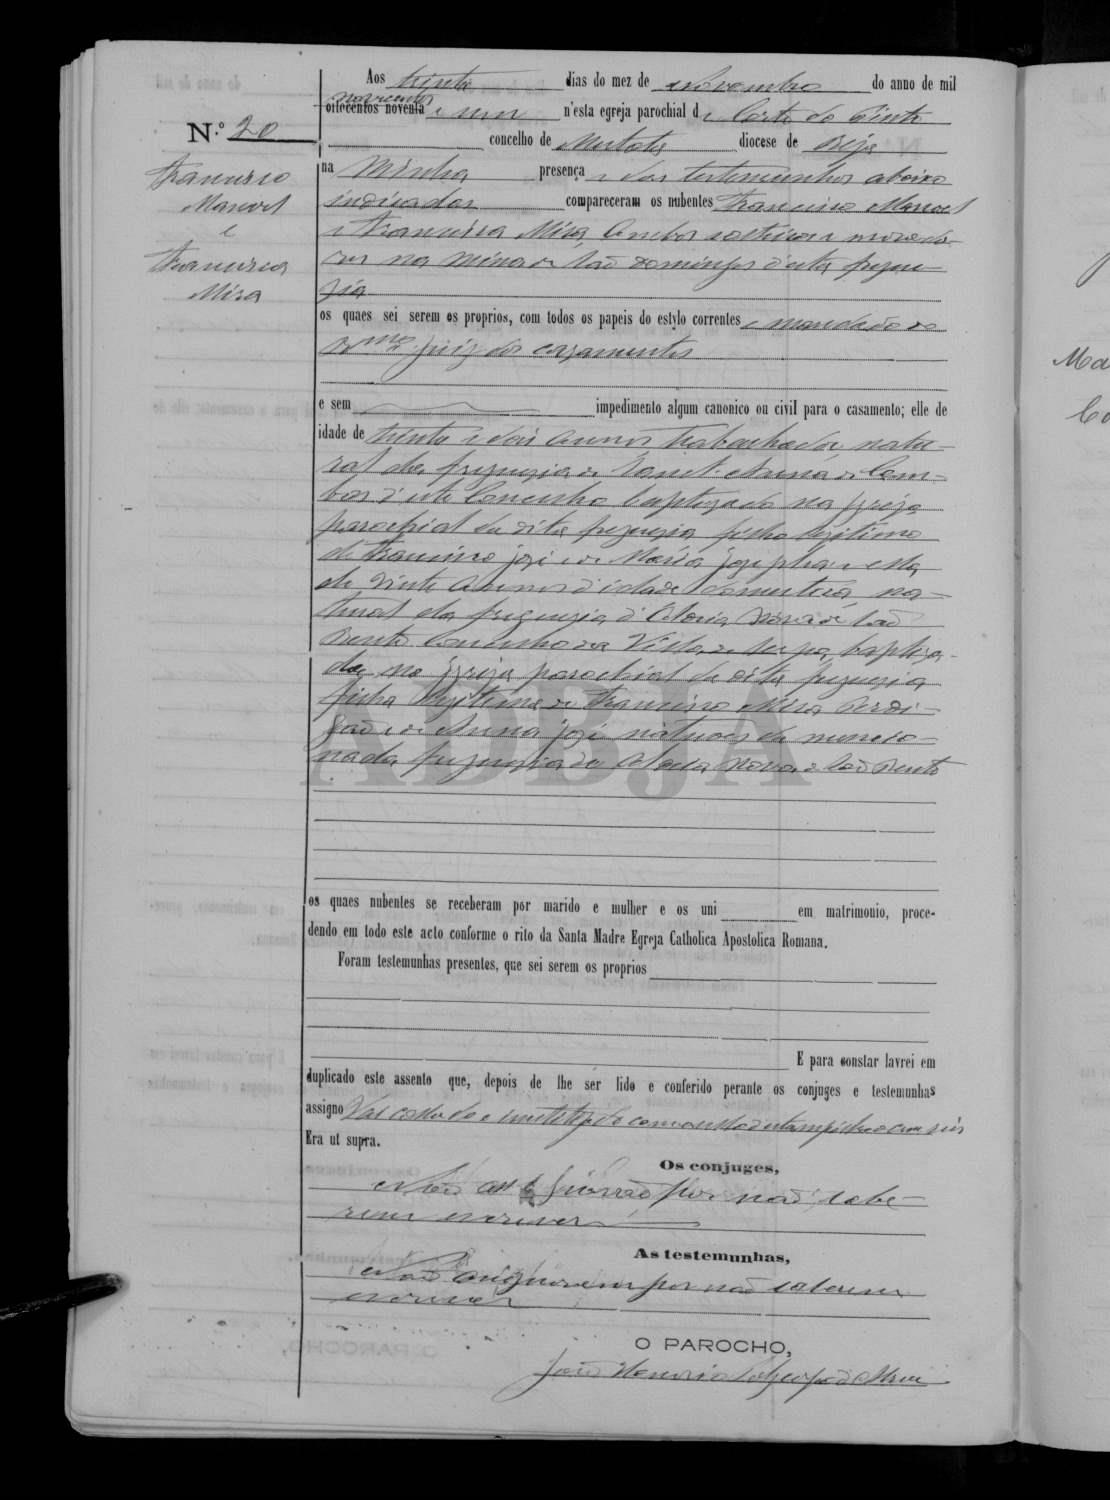 Aos trinta dias do mez de Novembro do anno de mil
novecentos
oitecentos noventa e um n'esta egreja parochial de Corte do Pinto
N.º 20
concelho de Mertola diocese de Beja
na Minha presença e das testemunhas abaixo
Francisco
Manoel
e
Francisca
Mira
indicadas compareceram os nubentes Francisco Manoel
e Francisca Mira Ambos solteiros e morado-
res na Mina de São Domingos d'esta fregue-
zia
os quaes sei serem os proprios, com todos os papeis do estylo correntes e mandado do
Rmo juiz dos cazamentos
e sem impedimento algum canonico ou civil para o casamento; elle de
idade de trinta e dois Annos Trabalhador natu-
ral da freguezia de Sant Anna de Cam-
bas d'este Concelho baptizado na Igreja
parochial da dita freguezia filho legitimo
de Francisco José e de Maria Josepha e ella
de vinte Annos d'idade domestica na-
tural da freguezia d'Aldeia Nova de São
Bento Concelho da Villa de Serpa, baptiza-
da na Igreja parochial da dita freguezia
filha legitima de Francisco Mira
e de Anna José naturaes da mencio-
nada freguezia de Aldeia Nova de São Bento
ADBJA
os quaes nubentes se receberam por marido e mulher e os uni em matrimonio, proce-
dendo em todo este acto conforme o rito da Santa Madre Egreja Catholica Apostolica Romana.
Foram testemunhas presentes, que sei serem os proprios
E para constar lavrei em
duplicado este assento que, depois de lhe ser lido e conferido perante os conjuges e testemunhas
assigno Vai collado e inutilizado
Era ut supra.
Os conjuges,
Não assignarão por não sabe-
rem escrever
As testemunhas,
Não assignarem por não saberem
escrever
O PAROCHO,
João
Ma